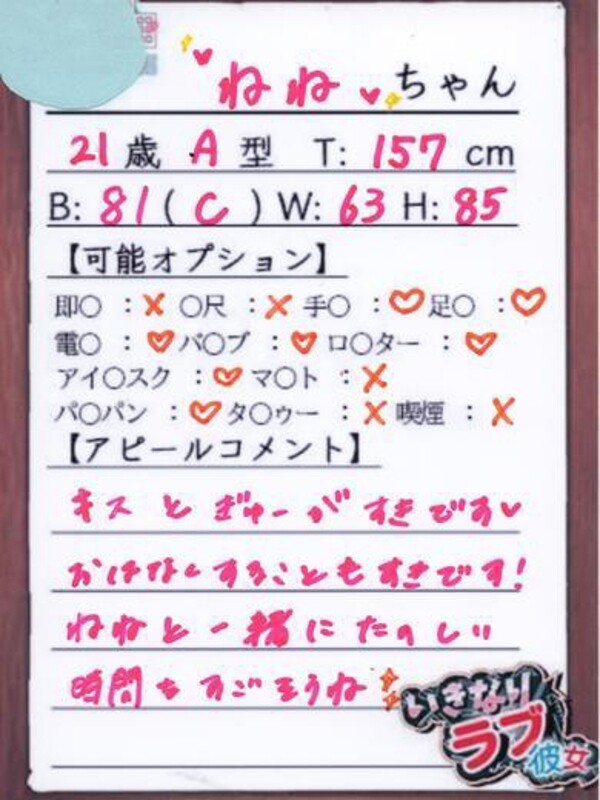 ねね ちゃん
21 歳 A 型 T: 157 cm
B: 81 ( C ) W: 63 H: 85
【可能オプション】
即〇 : × 〇尺 : × 手〇 : ♡ 足〇 : ♡
電〇 : ♡ バ〇ブ : ♡ ロ〇ター : ♡
アイ〇スク : ♡ マ〇ト : ×
パ〇パン : ♡ タ〇ゥー : × 喫煙 : ×
【アピールコメント】
キスとぎゅーがすきです♡
おはなしすることもすきです!
ねねと一緒にたのしい
時間をすごそうね
いきなり
ラブ彼女